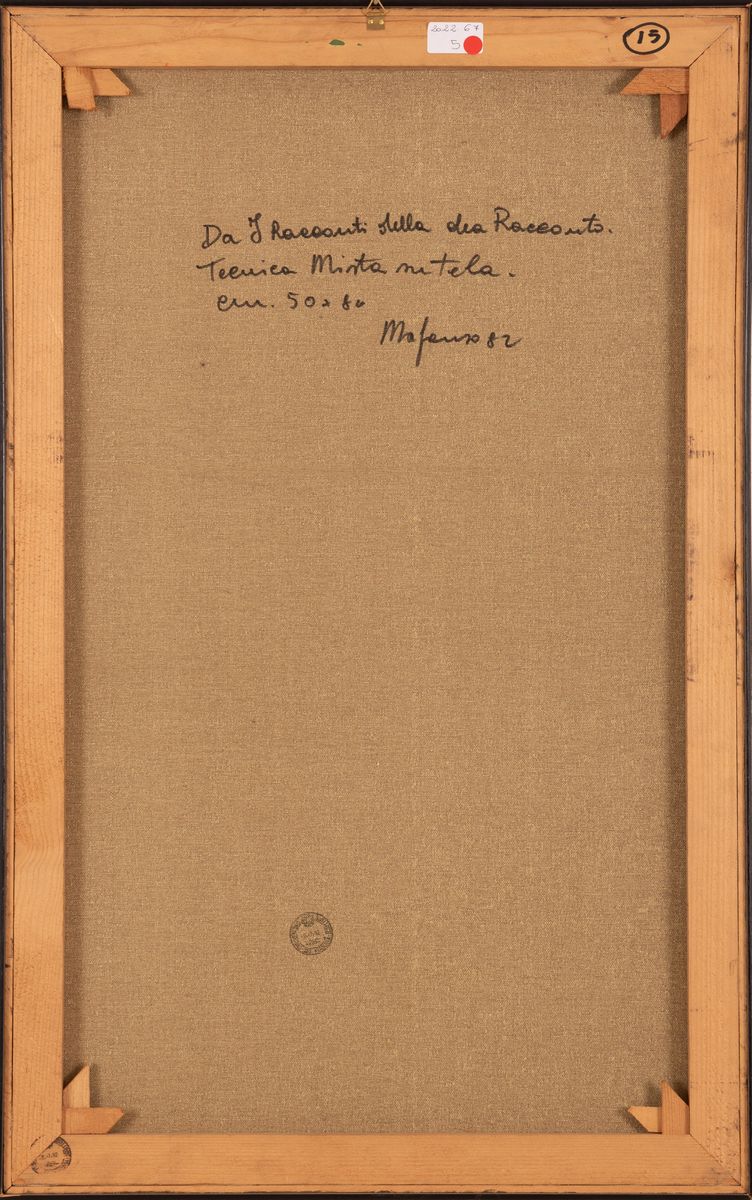 2022 67
5
15
Da I Racconti della dea Racconto.
Tecnica Mista su Tela.
cm. 50x80
Mafonso 82